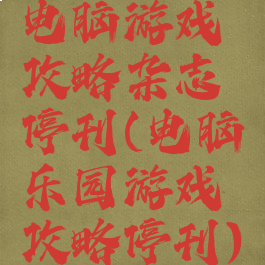 电脑游戏
攻略杂志
停刊(电脑
乐园游戏
攻略停刊)